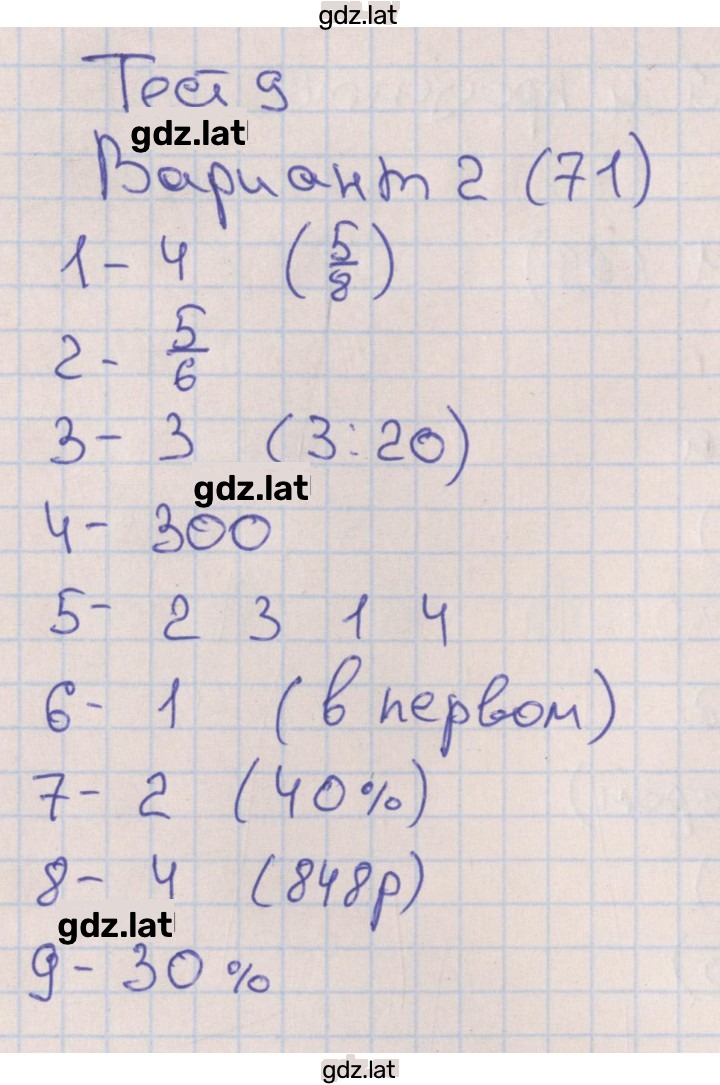 gdz.lat
Тест 9
gdz.lat
Вариант 2 (71)
1 - 4 (5/8)
2 - 5/6
3 - 3 (3:20)
gdz.lat
4 - 300
5 - 2 3 1 4
6 - 1 (в первом)
7 - 2 (40%)
8 - 4 (848р)
gdz.lat
9 - 30%
gdz.lat